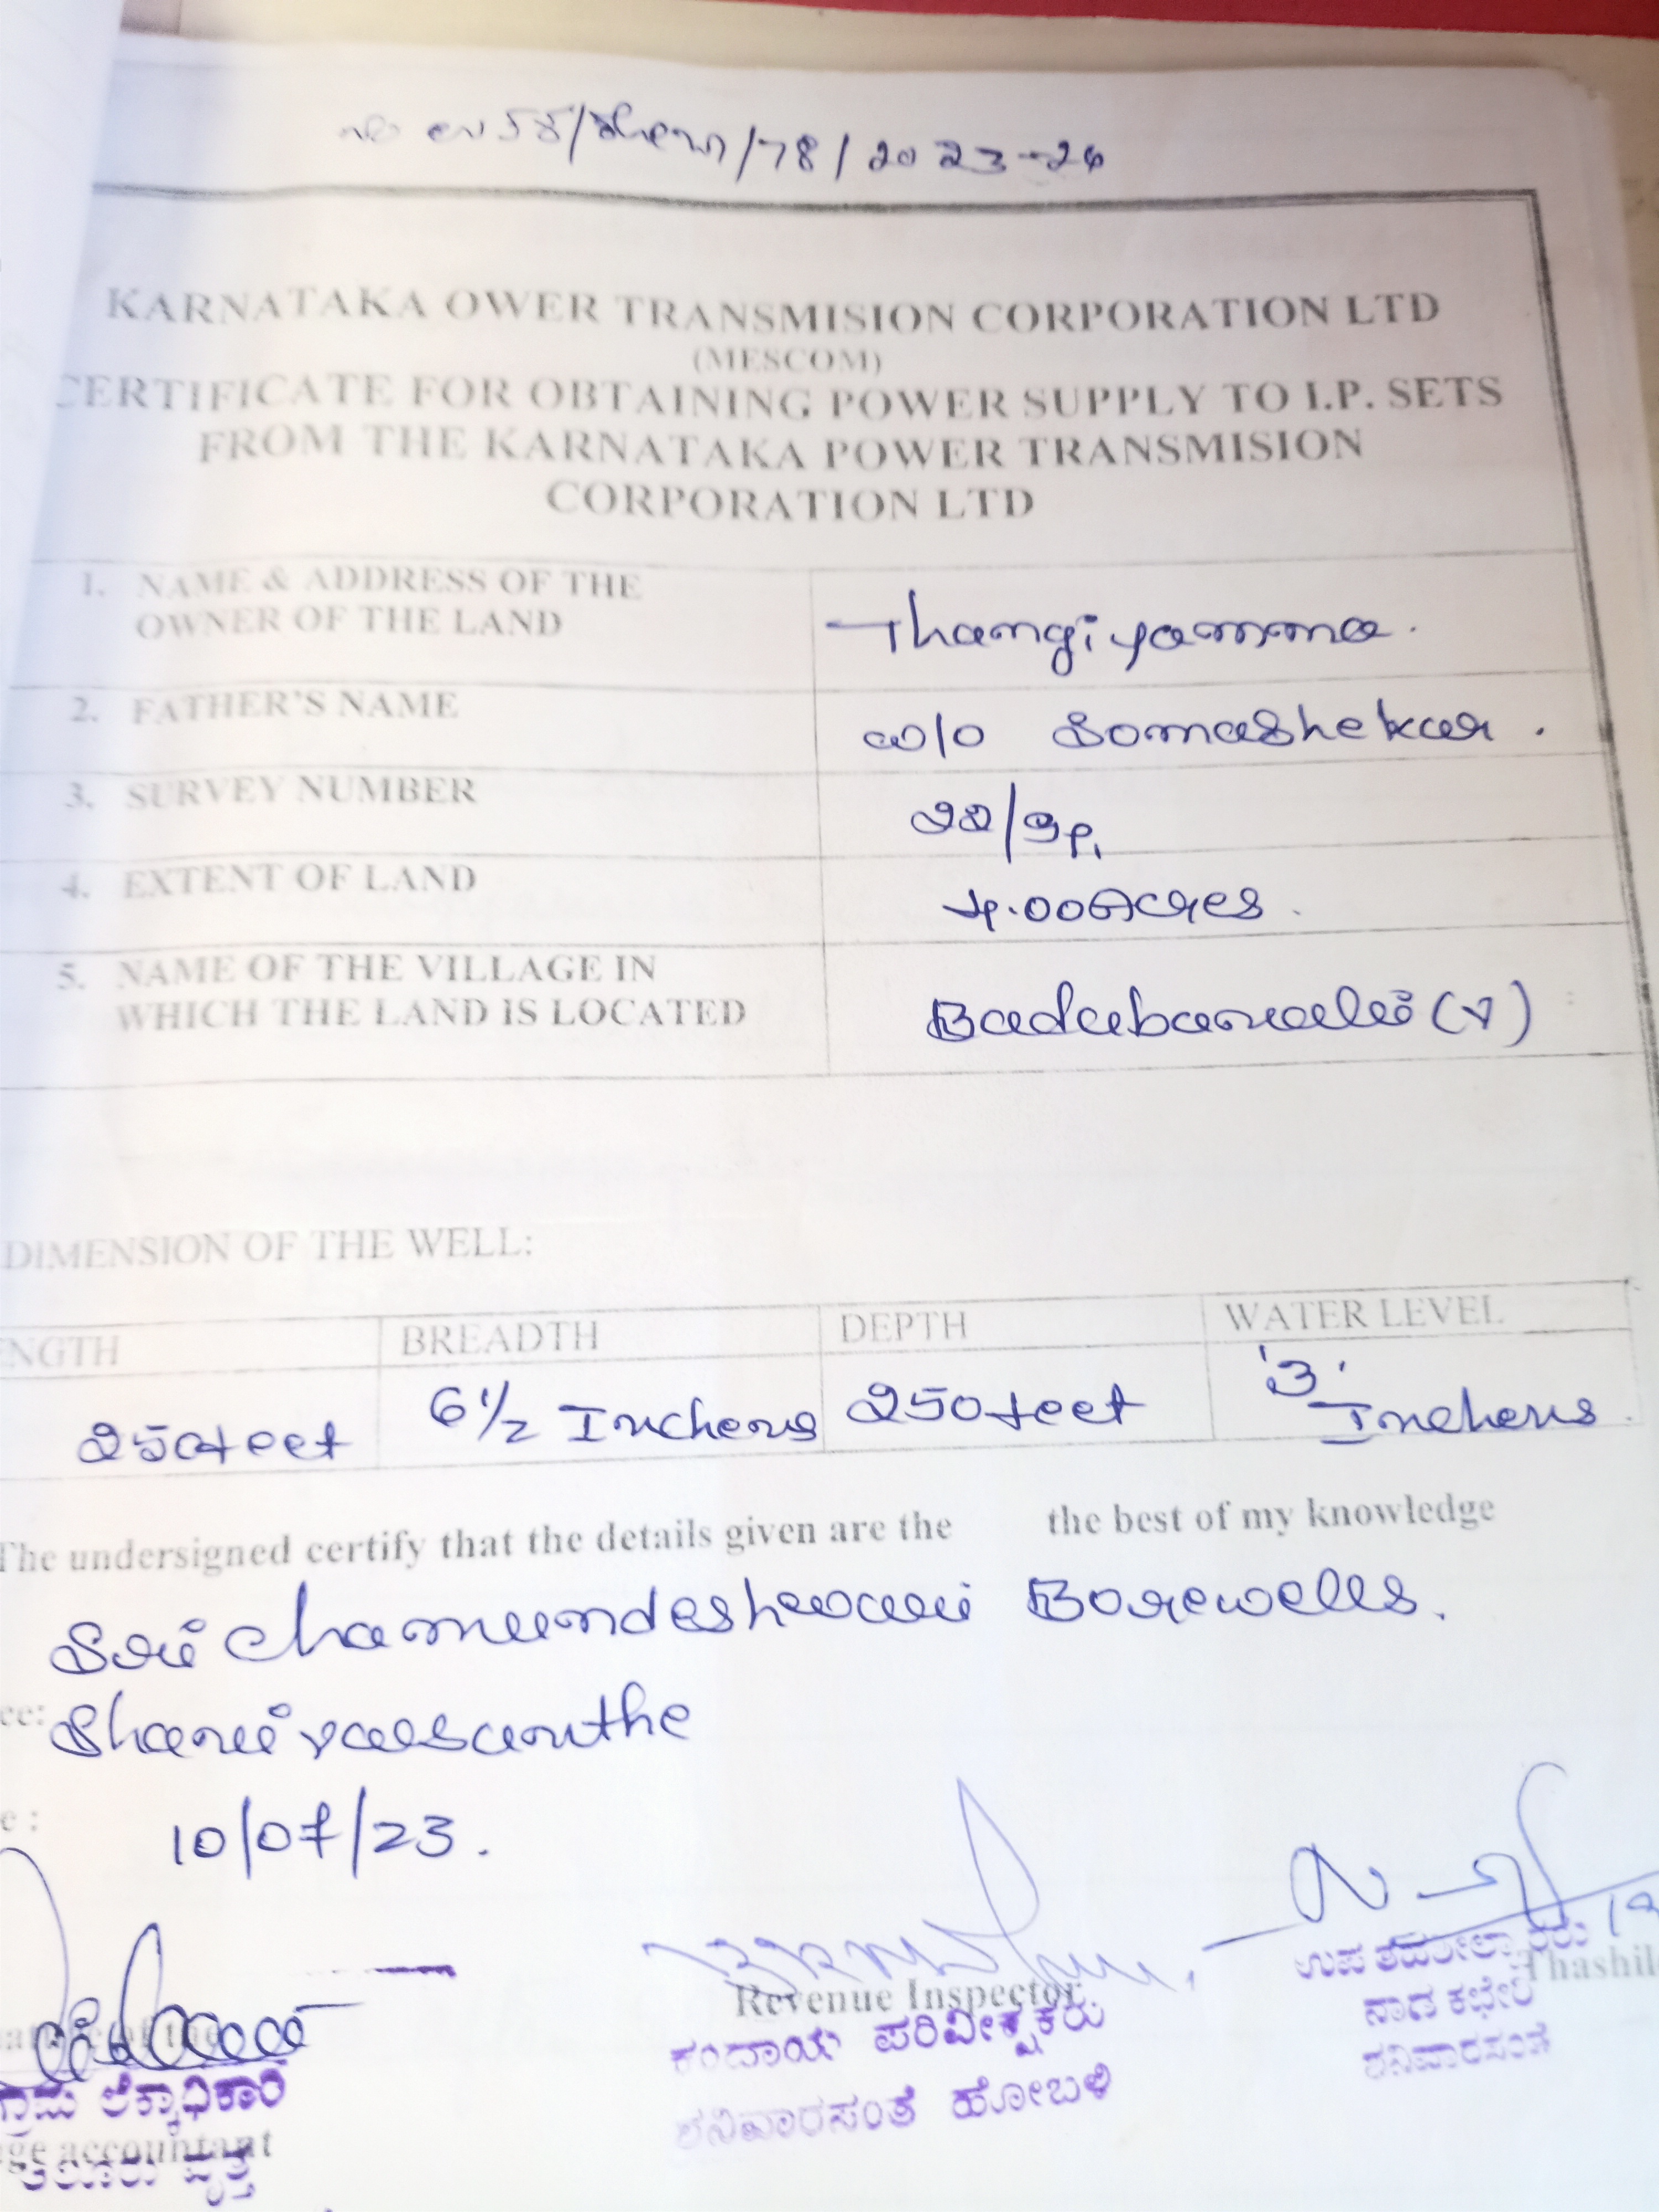 /78/2023-24
KARNATAKA OWER TRANSMISION CORPORATION LTD
(MESCOM)
CERTIFICATE FOR OBTAINING POWER SUPPLY TO I.P. SETS
FROM THE KARNATAKA POWER TRANSMISION
CORPORATION LTD
1. NAME & ADDRESS OF THE
OWNER OF THE LAND
Thangiyamma.
2. FATHER'S NAME
w/o Somashekar.
3. SURVEY NUMBER
4. EXTENT OF LAND
4.00Acres.
5. NAME OF THE VILLAGE IN
WHICH THE LAND IS LOCATED
Badabanali (V)
DIMENSION OF THE WELL:
ENGTH BREADTH DEPTH WATER LEVEL
250feet 6 1/2 Inchens 250feet '3' Inchens.
The undersigned certify that the details given are the the best of my knowledge
Sri Chamundeshwari Borewells.
ce: Shanivarsanthe
e : 10/07/23.
Revenue Inspector
Thashil
ಉಪ ತಹಶೀಲ್ದಾರರು
ನಾಡ ಕಛೇರಿ
ಶನಿವಾರಸಂತೆ
ಕಂದಾಯ ಪರಿವೀಕ್ಷಕರು
ಶನಿವಾರಸಂತೆ ಹೋಬಳಿ
ಗ್ರಾಮ ಲೆಕ್ಕಾಧಿಕಾರಿ
ge accountant
ವೃತ್ತ